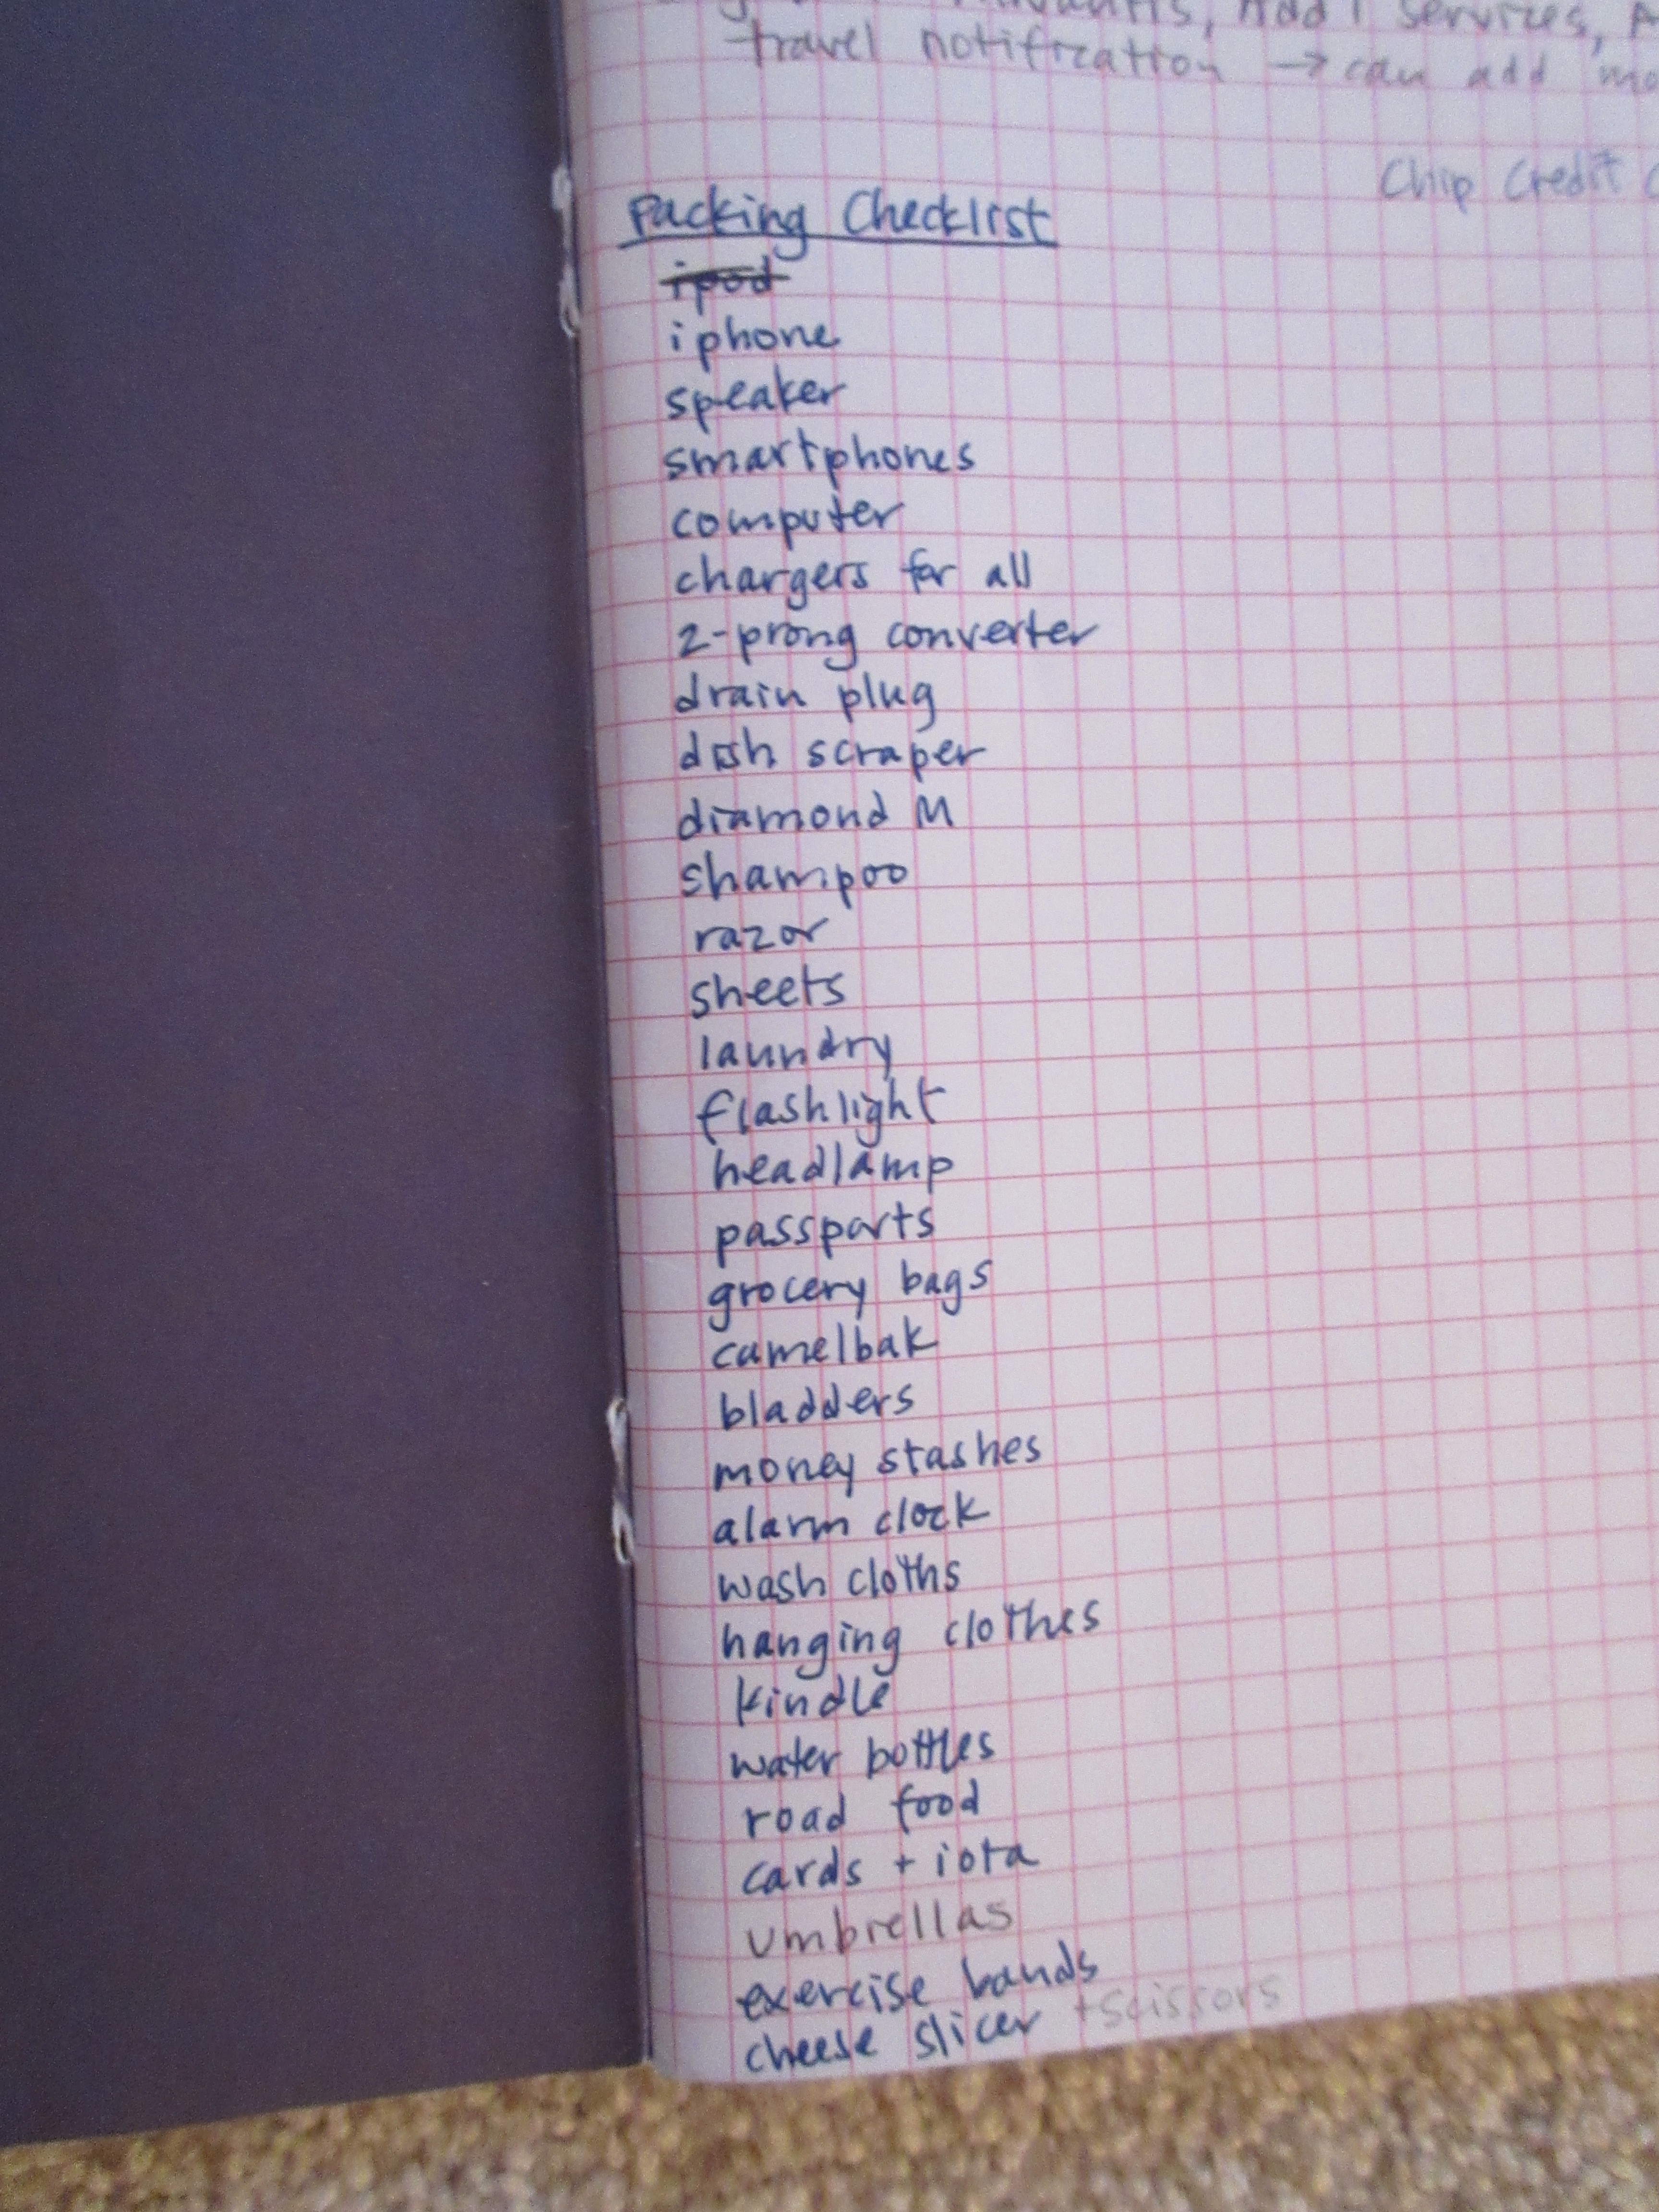 services,
travel notification → can add
Chip Credit
Packing Checklist
ipod
iphone
speaker
smartphones
computer
chargers for all
2-prong converter
drain plug
dish scraper
diamond M
shampoo
razor
sheets
laundry
flashlight
headlamp
passports
grocery bags
camelbak
bladders
money stashes
alarm clock
wash cloths
hanging clothes
kindle
water bottles
road food
cards + iota
umbrellas
exercise bands
cheese slicer + scissors